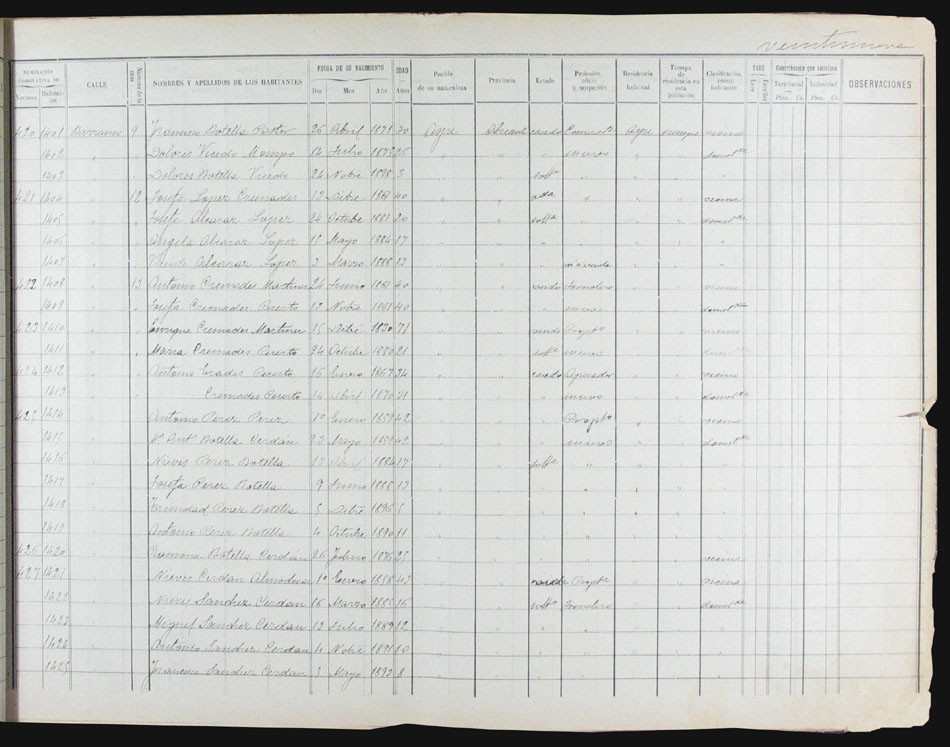 veintinueve
NUMERACION CORRELATIVA DE
Vecinos Habitantes
CALLE
Número de la casa
NOMBRES Y APELLIDOS DE LOS HABITANTES
FECHA DE SU NACIMIENTO
Día Mes Año
EDAD
Años
Pueblo de su naturaleza
Provincia
Estado
Profesión, oficio u ocupación
Residencia habitual
Tiempo de residencia en esta población
Clasificación como habitante
SABE
Leer Escribir
Contribución que satisface
Territorial Industrial
Ptas. Cs. Ptas. Cs.
OBSERVACIONES
420 1401 9 Francisco Botella Pastor 26 Abril 1871 30 Aspe Alicante casado Comerct. Aspe siempre vecino
1402 " Dolores Vicedo 14 Julio 1875 26 " " " " " "
1403 " Dolores Botella Vicedo 24 Nbre 1898 3 " " soltª " " "
421 1404 " 12 Josefa Lopez Cremades 13 Dbre 1861 40 " " vda " " " vecina
1405 " Josefa Alcaraz Lopez 24 Octubre 1881 20 " " soltª " " "
1406 " Angela Alcaraz Lopez 15 Mayo 1884 17 " " " " "
1407 " Vicente Alcaraz Lopez 3 Marzo 1888 13 " " " " "
422 1408 " 13 Antonio Cremades Martinez 24 Junio 1861 40 " " casado Jornalero " " vecino
1409 " Josefa Cremades Puerto 12 Nobre 1861 40 " " " " "
423 1410 " Enrique Cremades Martinez 15 Dbre 1830 71 " " viudo Propt " " vecino
1411 " Maria Cremades Puerto 24 Octubre 1880 21 " " soltª " "
424 1412 " Antonio 16 Enero 1867 34 " " casado " " vecino
1413 " Cremades Puerto 14 Abril 1870 31 " " " " "
425 1414 " Antonio Perez Perez 1º Enero 1859 42 " " " Propt " " vecino
1415 " Mª Antª Botella Cerdan 22 Mayo 1859 42 " " " " "
1416 " Nieves Perez Botella 13 Abril 1884 17 " " soltª " " "
1417 " Josefa Perez Botella 9 Junio 1888 13 " " " " " "
1418 " Trinidad Perez Botella 5 Dbre 1896 5 " " " " "
1419 " Antonio Perez Botella 4 Octubre 1890 11 " " " " "
426 1420 " Ramona Botella Cerdan 26 Febrero 1876 25 " " " " " vecina
427 1421 " Nieves Cerdan Almodovar 1º Enero 1858 43 " " Propt " " vecina
1422 " Nieves Sanchez Cerdan 16 Marzo 1885 16 " " soltª Jornalero " "
1423 " Miguel Sanchez Cerdan 13 Julio 1889 12 " " " " "
1424 " Antonio Sanchez Cerdan 4 Nobre 1891 10 " " " " "
1425 " Francisco Sanchez Cerdan 5 Mayo 1893 8 " " " " "